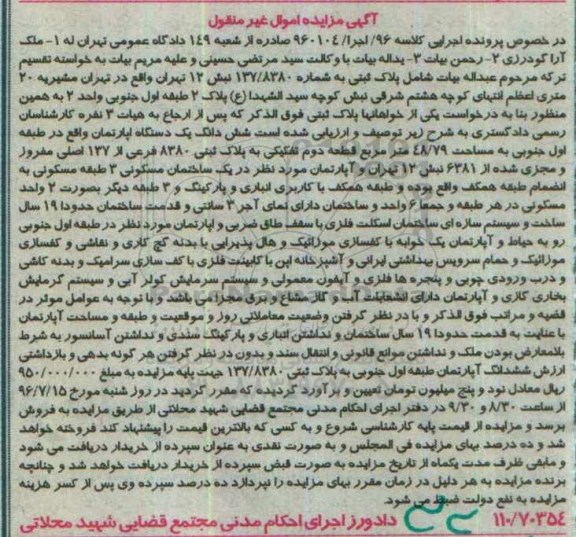 آگهی مزایده اموال غیر منقول
در خصوص پرونده اجرایی کلاسه ۹۶/ اجرا/ ۹۶۰۱۰۴ صادره از شعبه ۱۴۹ دادگاه عمومی تهران له ۱- ملک
آرا گودرزی ۲- رحمن بیات ۳- یداله بیات با وکالت سید مرتضی حسینی و علیه مریم بیات به خواسته تقسیم
ترکه مرحوم عبداله بیات شامل پلاک ثبتی به شماره ۱۳۷/۸۳۸۰ نبش ۱۳ تهران واقع در تهران مشیریه ۲۰
متری اعظم انتهای کوچه هشتم شرقی نبش کوچه سید الشهدا (ع) پلاک ۲ طبقه اول جنوبی واحد ۲ به همین
منظور بنا به درخواست یکی از خواهانها پلاک ثبتی فوق الذکر که پس از ارجاع به هیات ۳ نفره کارشناسان
رسمی دادگستری به شرح زیر توصیف و ارزیابی شده است شش دانگ یک دستگاه آپارتمان واقع در طبقه
اول جنوبی به مساحت ۴۸/۷۹ متر مربع قطعه دوم تفکیکی به پلاک ثبتی ۸۳۸۰ فرعی از ۱۳۷ اصلی مفروز
و مجزی شده از ۶۳۸۱ نبش ۱۳ تهران و آپارتمان مورد نظر در یک ساختمان مسکونی ۳ طبقه مسکونی به
انضمام طبقه همکف واقع بوده و طبقه همکف با کاربری انباری و پارکینگ و ۳ طبقه دیگر بصورت ۲ واحد
مسکونی در هر طبقه و جمعا ۶ واحد و ساختمان دارای نمای آجر ۳ سانتی و قدمت ساختمان حدودا ۱۹ سال
ساخت و سیستم سازه ای ساختمان اسکلت فلزی با سقف طاق ضربی و آپارتمان مورد نظر در طبقه اول جنوبی
رو به حیاط و آپارتمان یک خوابه با کفسازی موزائیک و هال پذیرایی با بدنه گچ کاری و نقاشی و کفسازی
موزائیک و حمام سرویس بهداشتی ایرانی و آشپزخانه اپن با کابینت فلزی با کف سازی سرامیک و بدنه کاشی
و درب ورودی چوبی و پنجره ها فلزی و آیفون معمولی و سیستم سرمایش کولر آبی و سیستم گرمایش
بخاری گازی و آپارتمان دارای انشعابات آب و گاز مشاع و برق مجزا می باشد و با توجه به عوامل موثر در
قضیه و مراتب فوق الذکر و با در نظر گرفتن وضعیت معاملاتی روز و موقعیت و طبقه و مساحت آپارتمان
با عنایت به قدمت حدودا ۱۹ سال ساختمان و نداشتن انباری و پارکینگ سندی و نداشتن آسانسور به شرط
بلامعارض بودن ملک و نداشتن موانع قانونی و انتقال سند و بدون در نظر گرفتن هر گونه بدهی و بازداشتی
ارزش ششدانگ آپارتمان طبقه اول جنوبی به پلاک ثبتی ۱۳۷/۸۳۸۰ جهت پایه مزایده به مبلغ ۹۵۰/۰۰۰/۰۰۰
ریال معادل نود و پنج میلیون تومان تعیین و برآورد گردیده که مقرر گردید در روز شنبه مورخ ۹۶/۷/۱۵
از ساعت ۸/۳۰ و ۹/۳۰ در دفتر اجرای احکام مدنی مجتمع قضایی شهید محلاتی از طریق مزایده به فروش
برسد و مزایده از قیمت پایه کارشناسی شروع و به کسی که بالاترین قیمت را پیشنهاد کند فروخته خواهد
شد و ده درصد بهای مزایده فی المجلس و به صورت نقدی به عنوان سپرده از خریدار دریافت می شود
و مابقی ظرف مدت یکماه از تاریخ مزایده به صورت قبض سپرده از خریدار دریافت خواهد شد و چنانچه
برنده مزایده به هر دلیل در زمان مقرر بهای مزایده را نپردازد ده درصد سپرده وی پس از کسر هزینه
مزایده به نفع دولت ضبط می شود.
۱۱۰/۷۰۳۵٤ دادورز اجرای احکام مدنی مجتمع قضایی شهید محلاتی